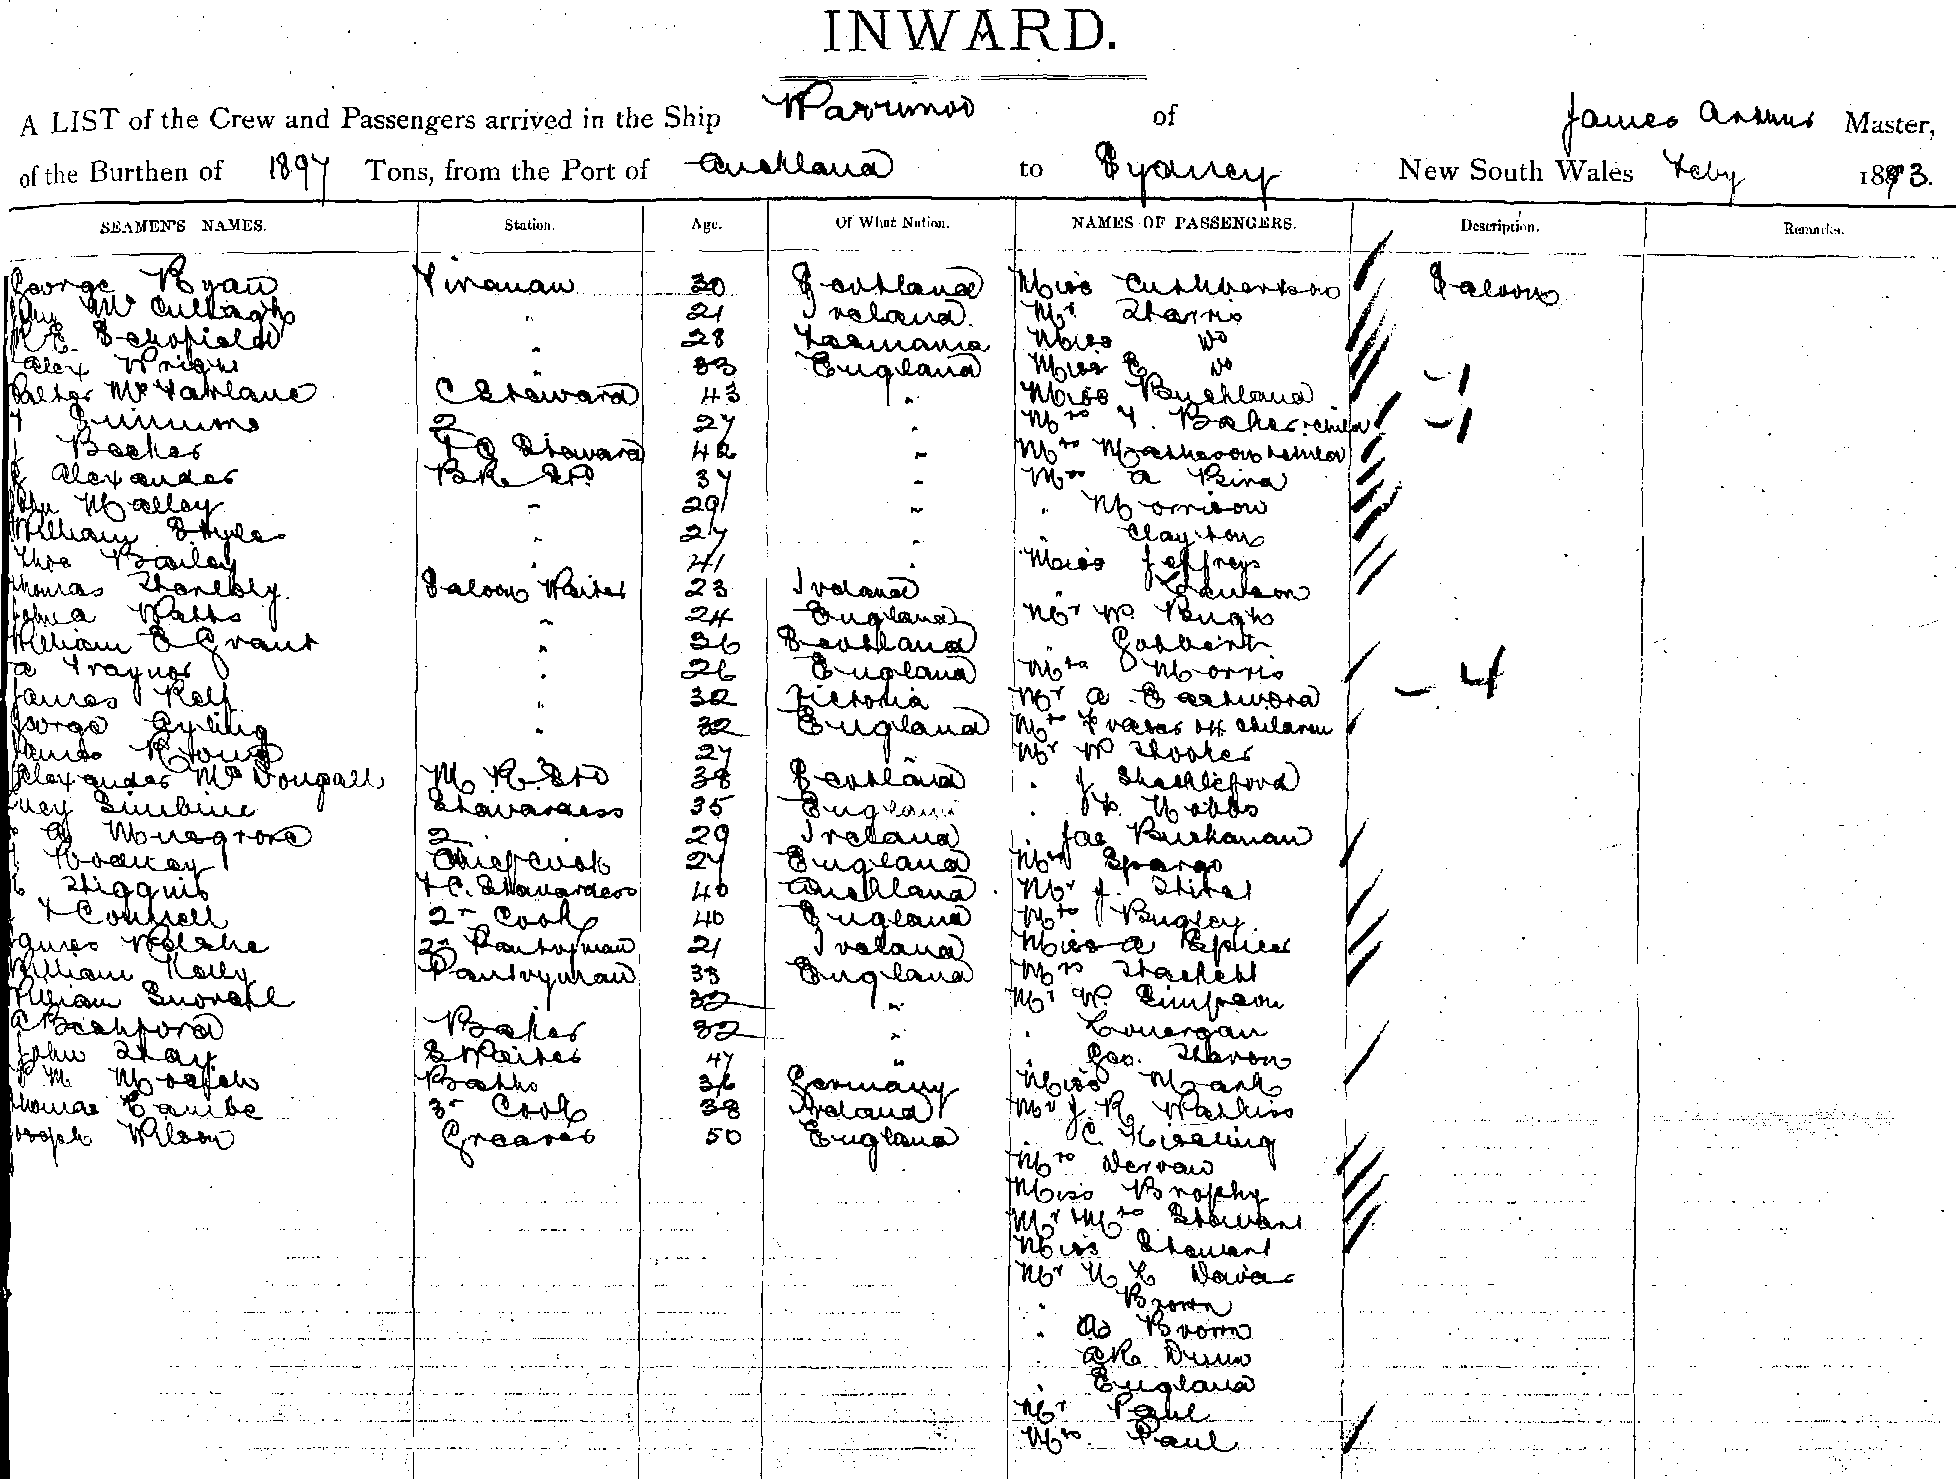 INWARD.
A LIST of the Crew and Passengers arrived in the Ship Warrimoo of James Arthur Master,
of the Burthen of 1897 Tons, from the Port of Auckland to Sydney New South Wales Feby 1893.
SEAMEN'S NAMES. Station. Age. Of What Nation. NAMES OF PASSENGERS. Description. Remarks.
George Ryan Fireman 30 Scotland Miss Cuthbertson Saloon
McCullagh " 21 Ireland Mr Harris
Schofield " 28 Tasmania Miss Do
Alex Wright " 33 England Miss E Do
Walter McFarlane C Steward 43 " Miss Buckland - 1
Simmons 2 27 " Mrs F. Baker & child - 1
Becker F C Steward 42 " Mrs Matheson & child
Alexander B.R. Std 37 " Mrs A Bird
John Malley " 29 " " Morrison
William Styles " 27 " " Clayton
Thos Bailey " 41 " Miss Jeffreys
Thomas Saloon Waiter 23 Ireland
Joshua Watts " 24 England Mr W Pugh
William E Grant " 36 Scotland "
A Traynor " 26 England Mrs Morris
James Relf " 32 Victoria Mr A Eastwood - 4
George Ayling " 32 England Mrs Frater & 4 children
James 27 Mr W Hooker
Alexander McDougall M. R. Std 38 Scotland " J Shackleford
Lucy Stewardess 35 England " Hobbs
Musgrove 2 29 Ireland " Jas Buchanan
Chief Cook 27 England Mrs Spargo
Higgins F C. Stewardess 40 Auckland Mr J.
F Connell 2nd Cook 40 England Mrs Pugley
James Welshe 2nd Pantryman 21 Ireland Miss A Spicer
William Kelly Pantryman 33 England Mrs Hackett
William 32 " Mr W. Simpson
Bashford Baker 32 " " Lonergan
John Hay S Waiter 47 " " Geo. Heron
M Baths 36 Germany Miss Mark
Thomas 3rd Cook 38 Ireland Mr J. R. Watkiss
Joseph Wilson Greaser 50 England " C. Kissling
Mrs Dervan
Miss Brophy
Mr & Mrs Stewart
Miss Stewart
Mr Davis
" Brown
" A Brown
" Dunn
" England
Mr Paul
Mrs Paul